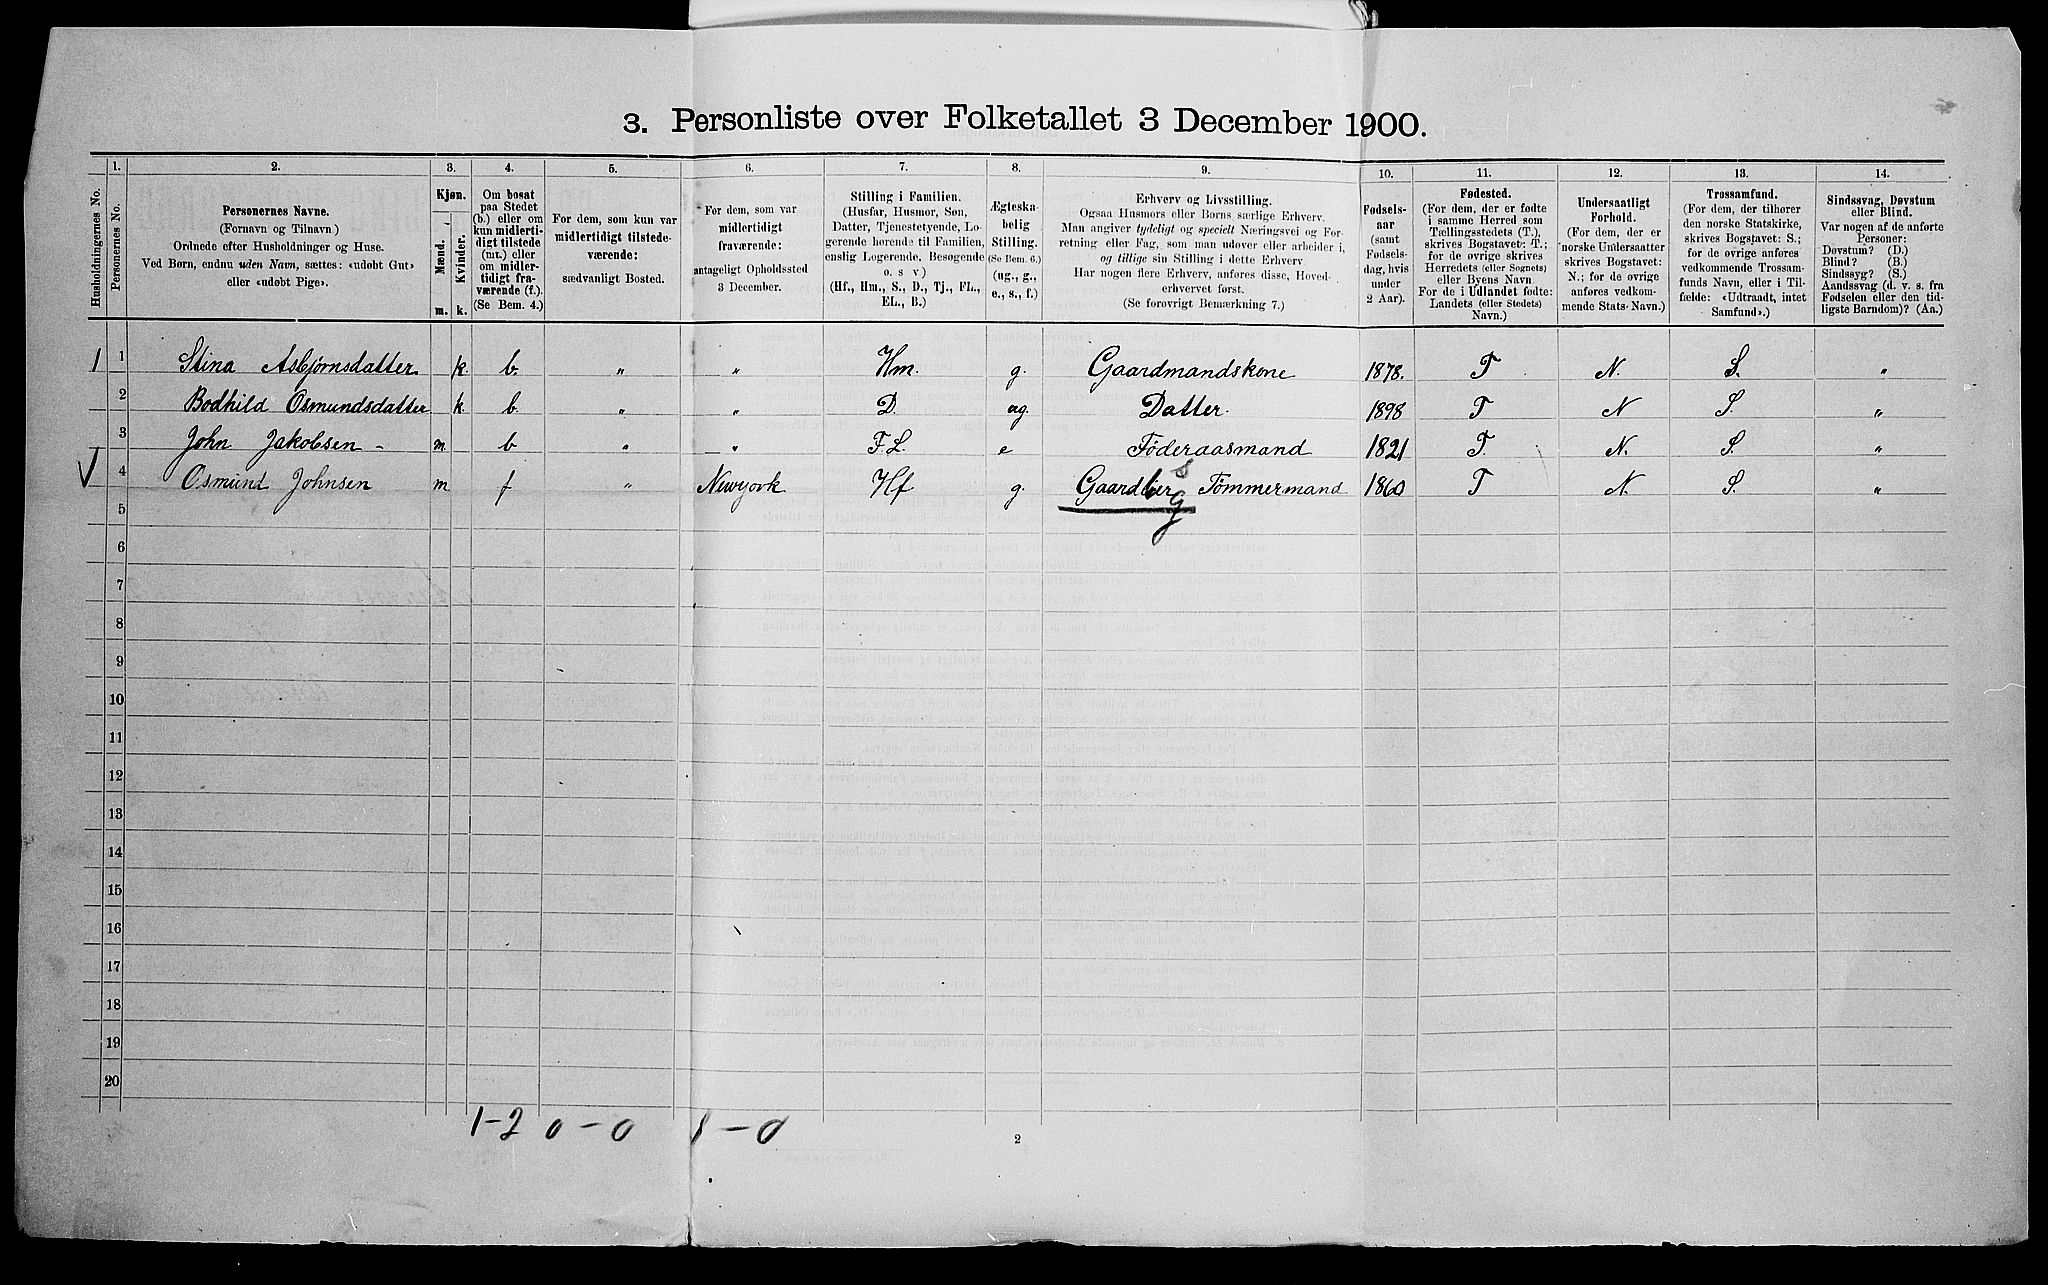 3. Personliste over Folketallet 3 December 1900.
Husholdningernes No.
1.
Personernes No.
2.
Personernes Navne.
(Fornavn og Tilnavn)
Ordnede efter Husholdninger og Huse.
Ved Børn, endnu uden Navn, sættes: «udøbt Gut»
eller «udøbt Pige».
3.
Kjøn.
Mænd.
Kvinder.
m. k.
4.
Om bosat
paa Stedet
(b.) eller om
kun midlerti-
digt tilstede
(mt.) eller
om midler-
tidigt fra-
værende (f.).
(Se Bem. 4.)
5.
For dem, som kun var
midlertidigt tilstede-
værende:
sædvanligt Bosted.
6.
For dem, som var
midlertidigt
fraværende:
antageligt Opholdssted
3 December.
7.
Stilling i Familien.
(Husfar, Husmor, Søn,
Datter, Tjenestetyende, Lo-
gerende hørende til Familien,
enslig Logerende, Besøgende
o. s v)
(Hf., Hm., S., D., Tj., FL.,
EL., B.)
8.
Ægteska-
belig
Stilling.
(Se Bem. 6.)
(ug., g.,
e., s., f.)
9.
Erhverv og Livsstilling.
Ogsaa Husmors eller Børns særlige Erhverv.
Man angiver tydeligt og specielt Næringsvei og For-
retning eller Fag, som man udøver eller arbeider i,
og tillige sin Stilling i dette Erhverv.
Har nogen flere Erhverv, anføres disse, Hoved-
erhvervet først.
(Se forøvrigt Bemærkning 7.)
10.
Fødsels-
aar
(samt
Fødsels-
dag, hvis
under
2 Aar).
11.
Fødested.
(For dem, der er fødte
i samme Herred som
Tællingsstedets (T.),
skrives Bogstavet: T.;
for de øvrige skrives
Herredets (eller Sognets)
eller Byens Navn
For de i Udlandet fødte:
Landets (eller Stedets)
Navn.)
12.
Undersaatligt
Forhold.
(For dem, der er
norske Undersaatter
skrives Bogstavet:
N.; for de øvrige
anføres vedkom-
mende Stats-Navn.)
13.
Trossamfund.
(For dem, der tilhører
den norske Statskirke,
skrives Bogstavet: S.;
for de øvrige anføres
vedkommende Trossam-
funds Navn, eller i Til-
fælde: «Udtraadt, intet
Samfund».)
14.
Sindssvag, Døvstum
eller Blind.
Var nogen af de anførte
Personer:
Døvstum? (D.)
Blind? (B.)
Sindssyg? (S.)
Aandssvag (d. v. s. fra
Fødselen eller den tid-
ligste Barndom)? (Aa.)
1 1 Stina Asbjørnsdatter k. b. „ „ Hm. g. Gaardmandskone 1878. T N. S. „
2 Bodhild Osmundsdatter k. b. „ „ D. ug. Datter. 1898 T N S. „
3 John Jakobsen - m. b „ „ F L. e Føderaasmand 1821 T. N. S. „
4 Osmund Johnsen m f „ Newyork Hf g. Gaardbrug Tømmermand 1860 T N. S. „
5
6
7
8
9
10
11
12
13
14
15
16
17
18
19
20
1-2 0-0 1-0
2